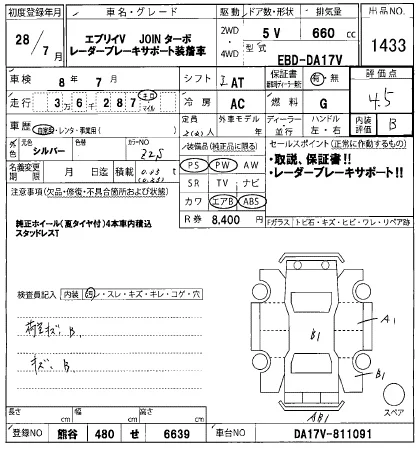 初度登録年月 車名・グレード 駆動 ドア数・形状 排気量 出品NO.
28/7月 エブリイV JOINターボ レーダーブレーキサポート装着車 2WD ・ 4WD 5 V 660 cc 1433
型式 EBD-DA17V
車検 8年 7月 シフト IAT 保証書 有・無 評価点 4.5
走行 3万6千287 キロ マイル 冷房 AC 燃料 G 内装評価 B
車歴 自家用・レンタ・事業用( ) 定員 外車モデル 年 ディーラー・並行 ハンドル 左・右
外色 元色 シルバー 色替 カラーNO Z2S
装備品(純正品に限る) セールスポイント(正常に作動するもの)
名義変更期限 月 日迄 積載 t
PS PW AW ・取説、保証書!!
SR TV ナビ ・レーダーブレーキサポート!!
カワ エアB ABS
R券 8,400円
注意事項(欠品・修復・不具合箇所および状態)
Fガラス トビ石・キズ・ヒビ・ワレ・リペア跡
純正ホイール(夏タイヤ付)4本車内積込
スタッドレスT
検査員記入 内装 ・スレ・キズ・キレ・コゲ・穴
荷室キズ、B、
キズ、B
A1
B1
B1
AB1
スペア
長さ cm 幅 cm 高さ cm
登録NO 熊谷 480 せ 6639 車台NO DA17V-811091